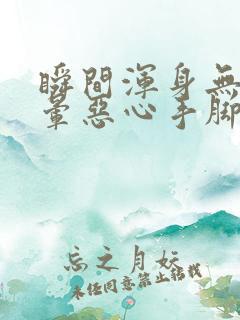 瞬間渾身無
暈惡心手腳
忘之月妖
未經同意禁止轉載